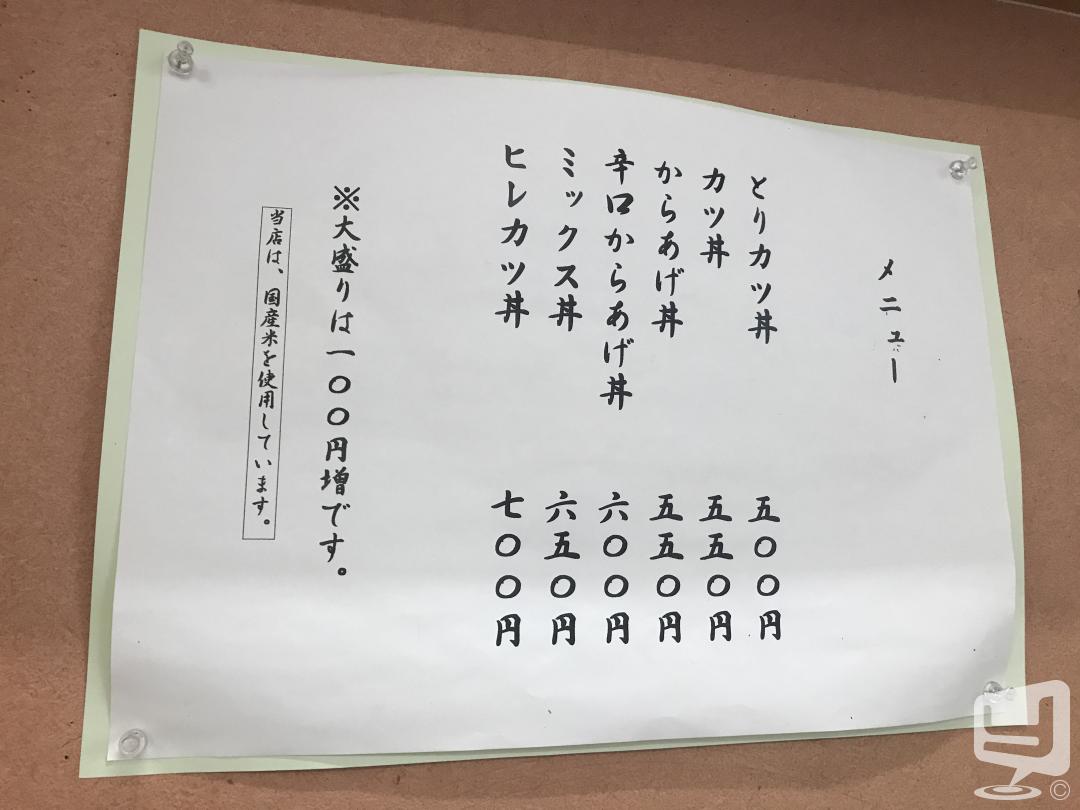 メニュー
とりカツ丼 五〇〇円
カツ丼 五五〇円
からあげ丼 五五〇円
辛口からあげ丼 六〇〇円
ミックス丼 六五〇円
ヒレカツ丼 七〇〇円
※大盛りは一〇〇円増です。
当店は、国産米を使用しています。
©